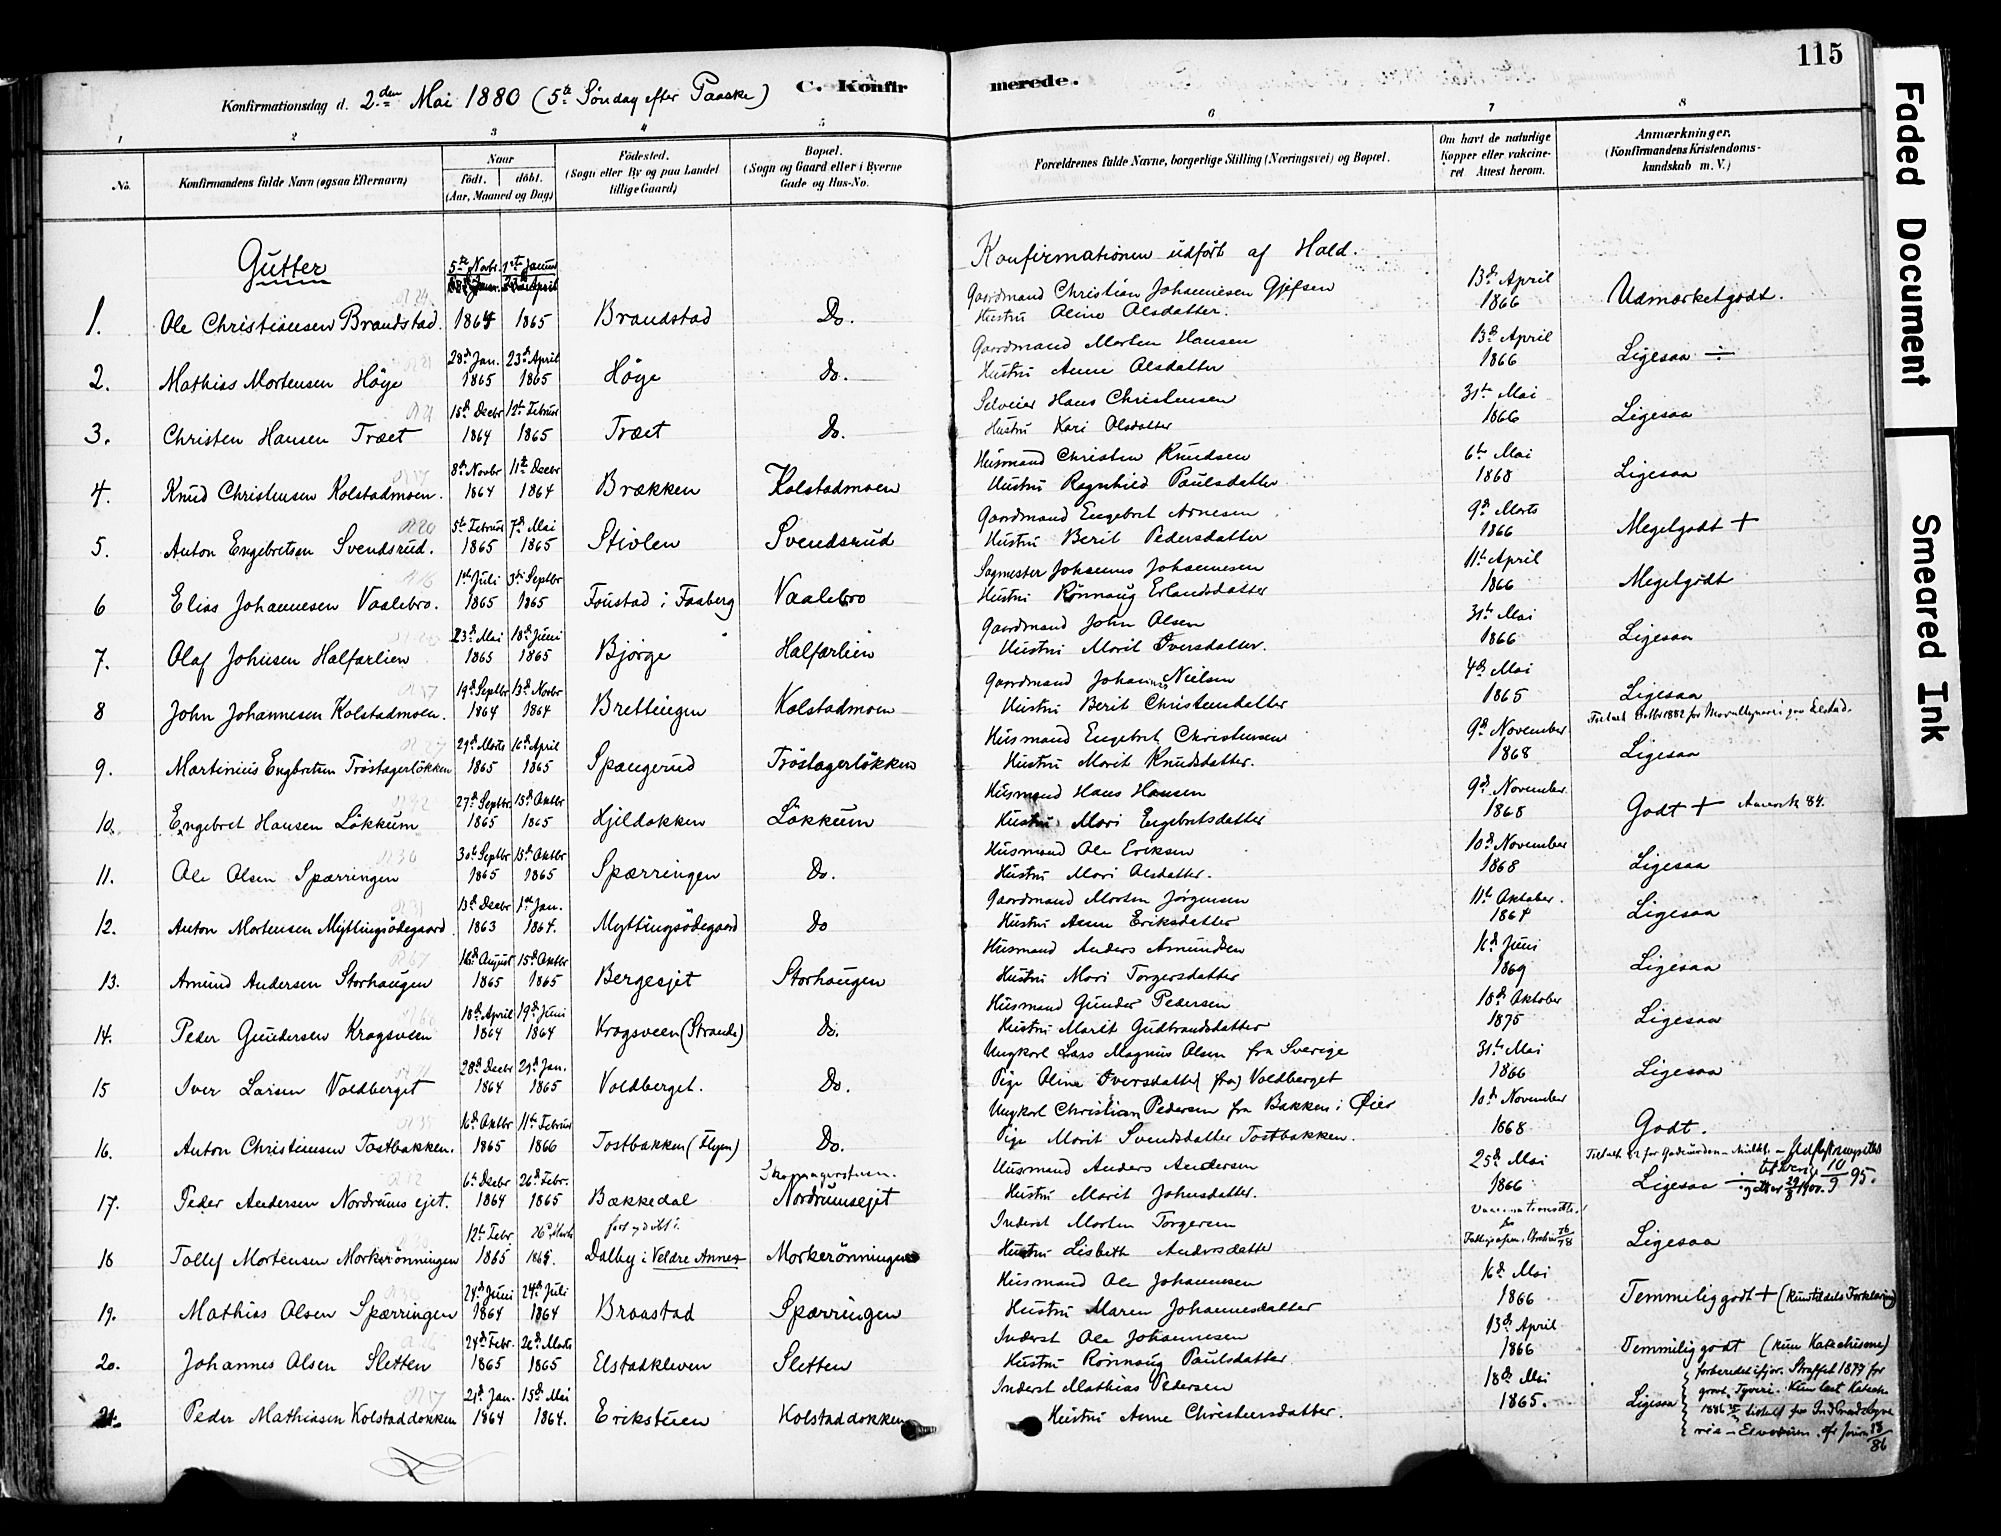 115
Faded Document
Smeared Ink
Konfirmationsdag d. 2den Mai 1880 (5te Søndag efter Paaske) C. Konfirmerede.
1 2 3 4 5 6 7 8
No.
Konfirmandens fulde Navn (ogsaa Efternavn)
Naar født. døbt. (Aar, Maaned og Dag)
Fødested. (Sogn eller By og paa Landet tillige Gaard)
Bopæl. (Sogn og Gaard eller i Byerne Gade og Hus-No.
Forældrenes fulde Navne, borgerlige Stilling (Næringsvei) og Bopæl.
Om havt de naturlige Kopper eller vaccineret Attest herom.
Anmærkninger. (Konfirmandens Kristendomskundskab m. V.)
Gutter
Konfirmationen udført af Hald.
1. Ole Christiansen Brandstad. 5te Novbr. 1864 1ste Januar 1865 Brandstad Do. Gaardmand Christian Johannesen Hustru Oline Olsdatter. 13de April 1866 Udmærketgodt.
2. Mathias Mortensen Höye 28de Jan. 1865 23de April 1865 Höye Do. Gaardmand Morten Hansen Hustru Anne Olsdatter 13de April 1866 Ligesaa ÷
3. Christen Hansen Træet 15de Decbr 1864 12te Februar 1865 Træet Do. Selveier Hans Christensen Hustru Kari Olsdatter 31te Mai 1866 Ligesaa
4. Knud Christensen Kolstadmoen. 8de Novbr 1864 11te Decbr 1864 Brækken Kolstadmoen Husmand Christen Knudsen Hustru Ragnhild Paulsdatter 6te Mai 1868 Ligesaa
5. Anton Engebretsen Svendsrud. 5te Februar 1865 7de Mai 1865 Stivlen Svendsrud Gaardmand Engebret Arnesen Hustru Berit Pedersdatter 9de Marts 1866 Megetgodt +
6 Elias Johannesen Vaalebro. 1ste Juli 1865 3die Septbr 1865 Foustad i Faaberg Vaalebro Sagmester Johannes Johannesen Hustru Rönnaug Erlandsdatter 11te April 1866 Megetgodt
7. Olaf Johnsen Halfarlien 23de Mai 1865 18de Juni 1865 Bjørge Halfarlien Gaardmand John Olsen Hustru Marit Iversdatter. 31te Mai 1866 Ligesaa
8 John Johannesen Kolstadmoen. 19de Septbr 1864 13de Novbr 1864 Brettingen Kolstadmoen Gaardmand Johannes Nielsen Hustru Berit Christensdatter 4de Mai 1865 Ligesaa
9. Martinius Engbretsen Tröstagerlökken 29de Marts 1865 16de April 1865 Spangerud Tröstagerlökken Husmand Engebret Christensen Hustru Marit Knudsdatter. 9de November 1868 Ligesaa
10. Engebret Hansen Lökkum 27de Septbr 1865 15de Oktbr 1865 Kjildokken Lökkum Husmand Hans Hansen Hustru Mari Engebretsdatter 9de November 1868 Godt +
11. Ole Olsen Spærringen 30te Septbr 1865 15de Oktbr 1865 Spærringen Do. Husmand Ole Eriksen Hustru Mari Olsdatter. 10de November 1868 Ligesaa
12. Anton Mortensen Myttingsödegaard 13de Decbr 1863 1ste Jan. 1864. Myttingsödegaard Do Gaardmand Morten Jørgensen Hustru Anne Eriksdatter 11te Oktober 1867 Ligesaa
13. Amund Andersen Storhaugen 16de August 1865 15de Oktbr 1865 Bergesjet Storhaugen Husmand Anders Amundsen Hustru Mari Torgersdatter 16de Juni 1869 Ligesaa
14. Peder Gundersen Kragsveen 18de April 1864 19de Juni 1864 Kragsveen (Strande) Do. Husmand Gunder Pedersen Hustru Marit Gudbrandsdatter 18de Oktober 1875 Ligesaa
15 Iver Larsen Voldberget 28de Decbr 1864 29de Jan. 1865 Voldberget. Do. Ungkarl Lars Magnus Olsen fra Sverige Pige Oline Iversdatter fra Voldberget 31te Mai 1866 Ligesaa
16. Anton Christiansen Tostbakken. 16de Oktbr 1865 11te Februar 1866 Tostbakken (Flyen) Do. Ungkarl Christian Pedersen fra Bakken i Øier Pige Marit Svendsdatter Tostbakken. 10de November 1868 Godt.
17. Peder Andersen Nordrumsejet. 6te Decbr 1864 26de Febr. 1865 Bækkedal Nordrumsejet Husmand Anders Andersen Hustru Marit Johnsdatter. 25de Mai 1866 Ligesaa ÷
18 Tollef Mortensen Morkerönningen 12te Febr. 1865 26de Marts 1865. Dalby i Veldre Annex Morkerönningen Inderst Morten Torgersen Hustru Lisbeth Andersdatter Ligesaa
19. Mathias Olsen Spærringen 24de Juni 1864 24de Juli 1864 Braastad Spærringen Husmand Ole Johannesen Hustru Maren Johannesdatter 16de Mai 1866 Temmelig godt + (kun tildels Forklaring)
20. Johannes Olsen Sletten 24de Febr. 1865 26de Marts 1865 Elstadkleven Sletten Inderst Ole Johannesen Hustru Rönnaug Paulsdatter 13de April 1866 Temmelig godt (kun Katechisme)
21. Peder Mathiasen Kolstaddokken 21de Jan. 1864 15de Mai 1864. Eriksteen Kolstaddokken Inderst Mathias Pedersen Hustru Anne Christensdatter. 18de Mai 1865. Ligesaa forberedet ifjor. Straffet 1879 for grovt Tyveri. Kun læst Katech.